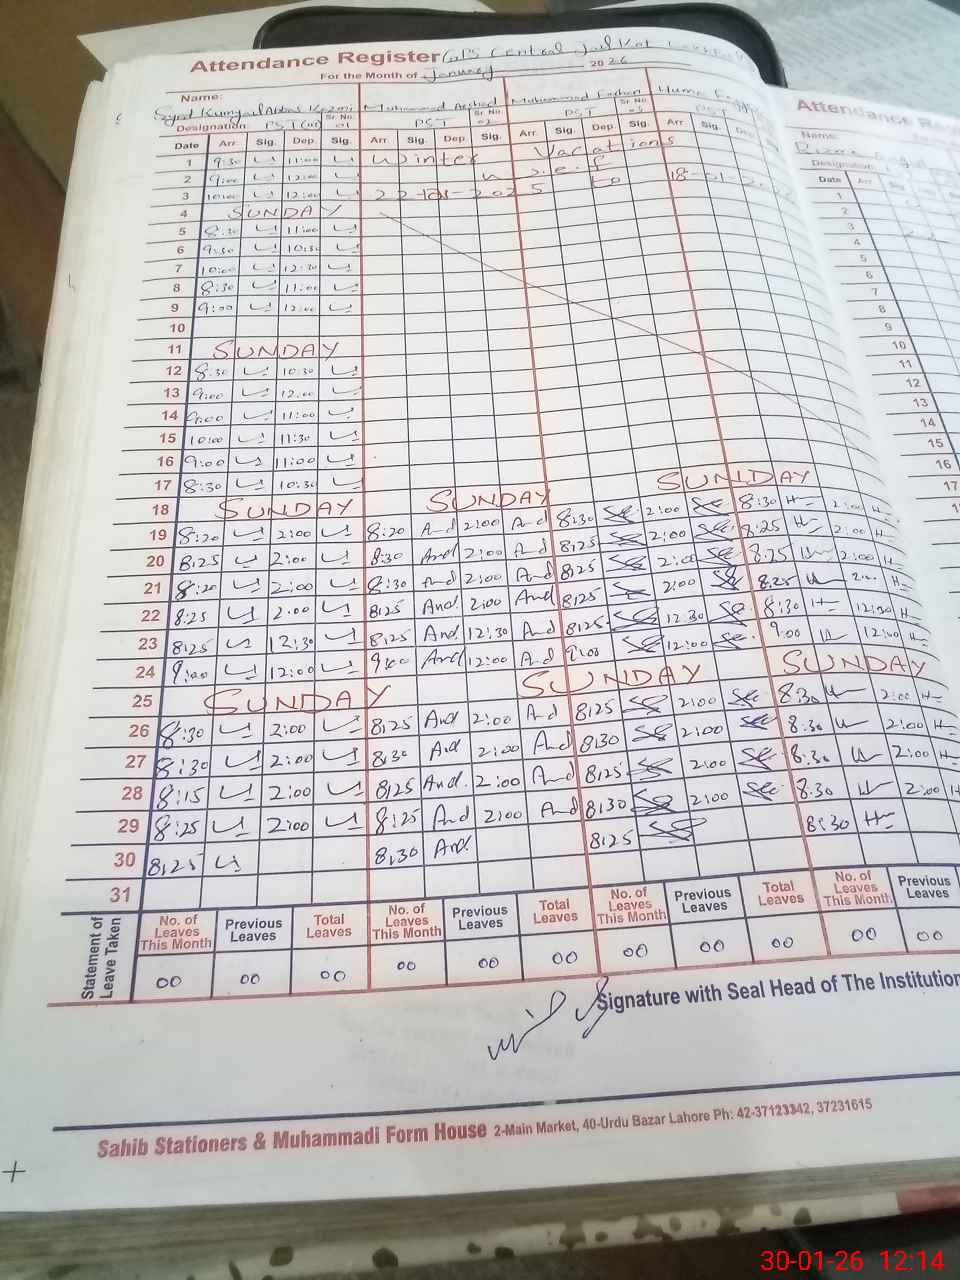 Attendance Register GPS Central Jail Kot
For the Month of January 2026
Name: Syed Kumyail Abbas Kazmi Muhammad Arshad Muhammad Huma
Designation: PST Sr. No. 01 PST Sr. No. 02 PST Sr. No. 03 PST
Date Arr. Sig. Dep. Sig. Arr. Sig. Dep. Sig. Arr. Sig. Dep. Sig. Arr. Sig. Dep
1 9:30 11:00 Winter Vacations
2 9:00 12:00 w.e.f 18-01-2
3 10:00 12:00 2025 to
4 SUNDAY
5 8:30 11:00
6 9:30 10:30
7 10:00 12:30
8 8:30 11:00
9 9:00 12:00
10
11 SUNDAY
12 8:30 10:30
13 9:00 12:00
14 9:00 11:00
15 10:00 11:30
16 9:00 11:00
17 8:30 10:30
18 SUNDAY SUNDAY SUNDAY
19 8:20 2:00 8:20 And 2:00 And 8:30 2:00 8:30 2:00
20 8:25 2:00 8:30 And 2:00 And 8:25 2:00 8:25 2:00
21 8:20 2:00 8:30 And 2:00 And 8:25 2:00 8:25 2:00
22 8:25 2:00 8:25 And 2:00 And 8:25 2:00 8:25 2:00
23 8:25 12:30 8:25 And 12:30 And 8:25 12:30 8:30 12:30
24 9:00 12:00 9:00 And 12:00 And 9:00 12:00 9:00 12:00
25 SUNDAY SUNDAY SUNDAY
26 8:30 2:00 8:25 And 2:00 And 8:25 2:00 8:30 2:00
27 8:30 2:00 8:30 And 2:00 And 8:30 2:00 8:30 2:00
28 8:15 2:00 8:25 And 2:00 And 8:25 2:00 8:30 2:00
29 8:25 2:00 8:25 And 2:00 And 8:30 2:00 8:30 2:00
30 8:25 8:30 And 8:25 8:30
31
Statement of Leave Taken
No. of Leaves This Month Previous Leaves Total Leaves No. of Leaves This Month Previous Leaves Total Leaves No. of Leaves This Month Previous Leaves Total Leaves No. of Leaves This Month Previous Leaves
00 00 00 00 00 00 00 00 00 00 00
Signature with Seal Head of The Institution
Sahib Stationers & Muhammadi Form House 2-Main Market, 40-Urdu Bazar Lahore Ph: 42-37123342, 37231615
Attendance Re
Name:
Designation:
Date Arr
1
2
3
4
5
6
7
8
9
10
11
12
13
14
15
16
17
30-01-26 12:14